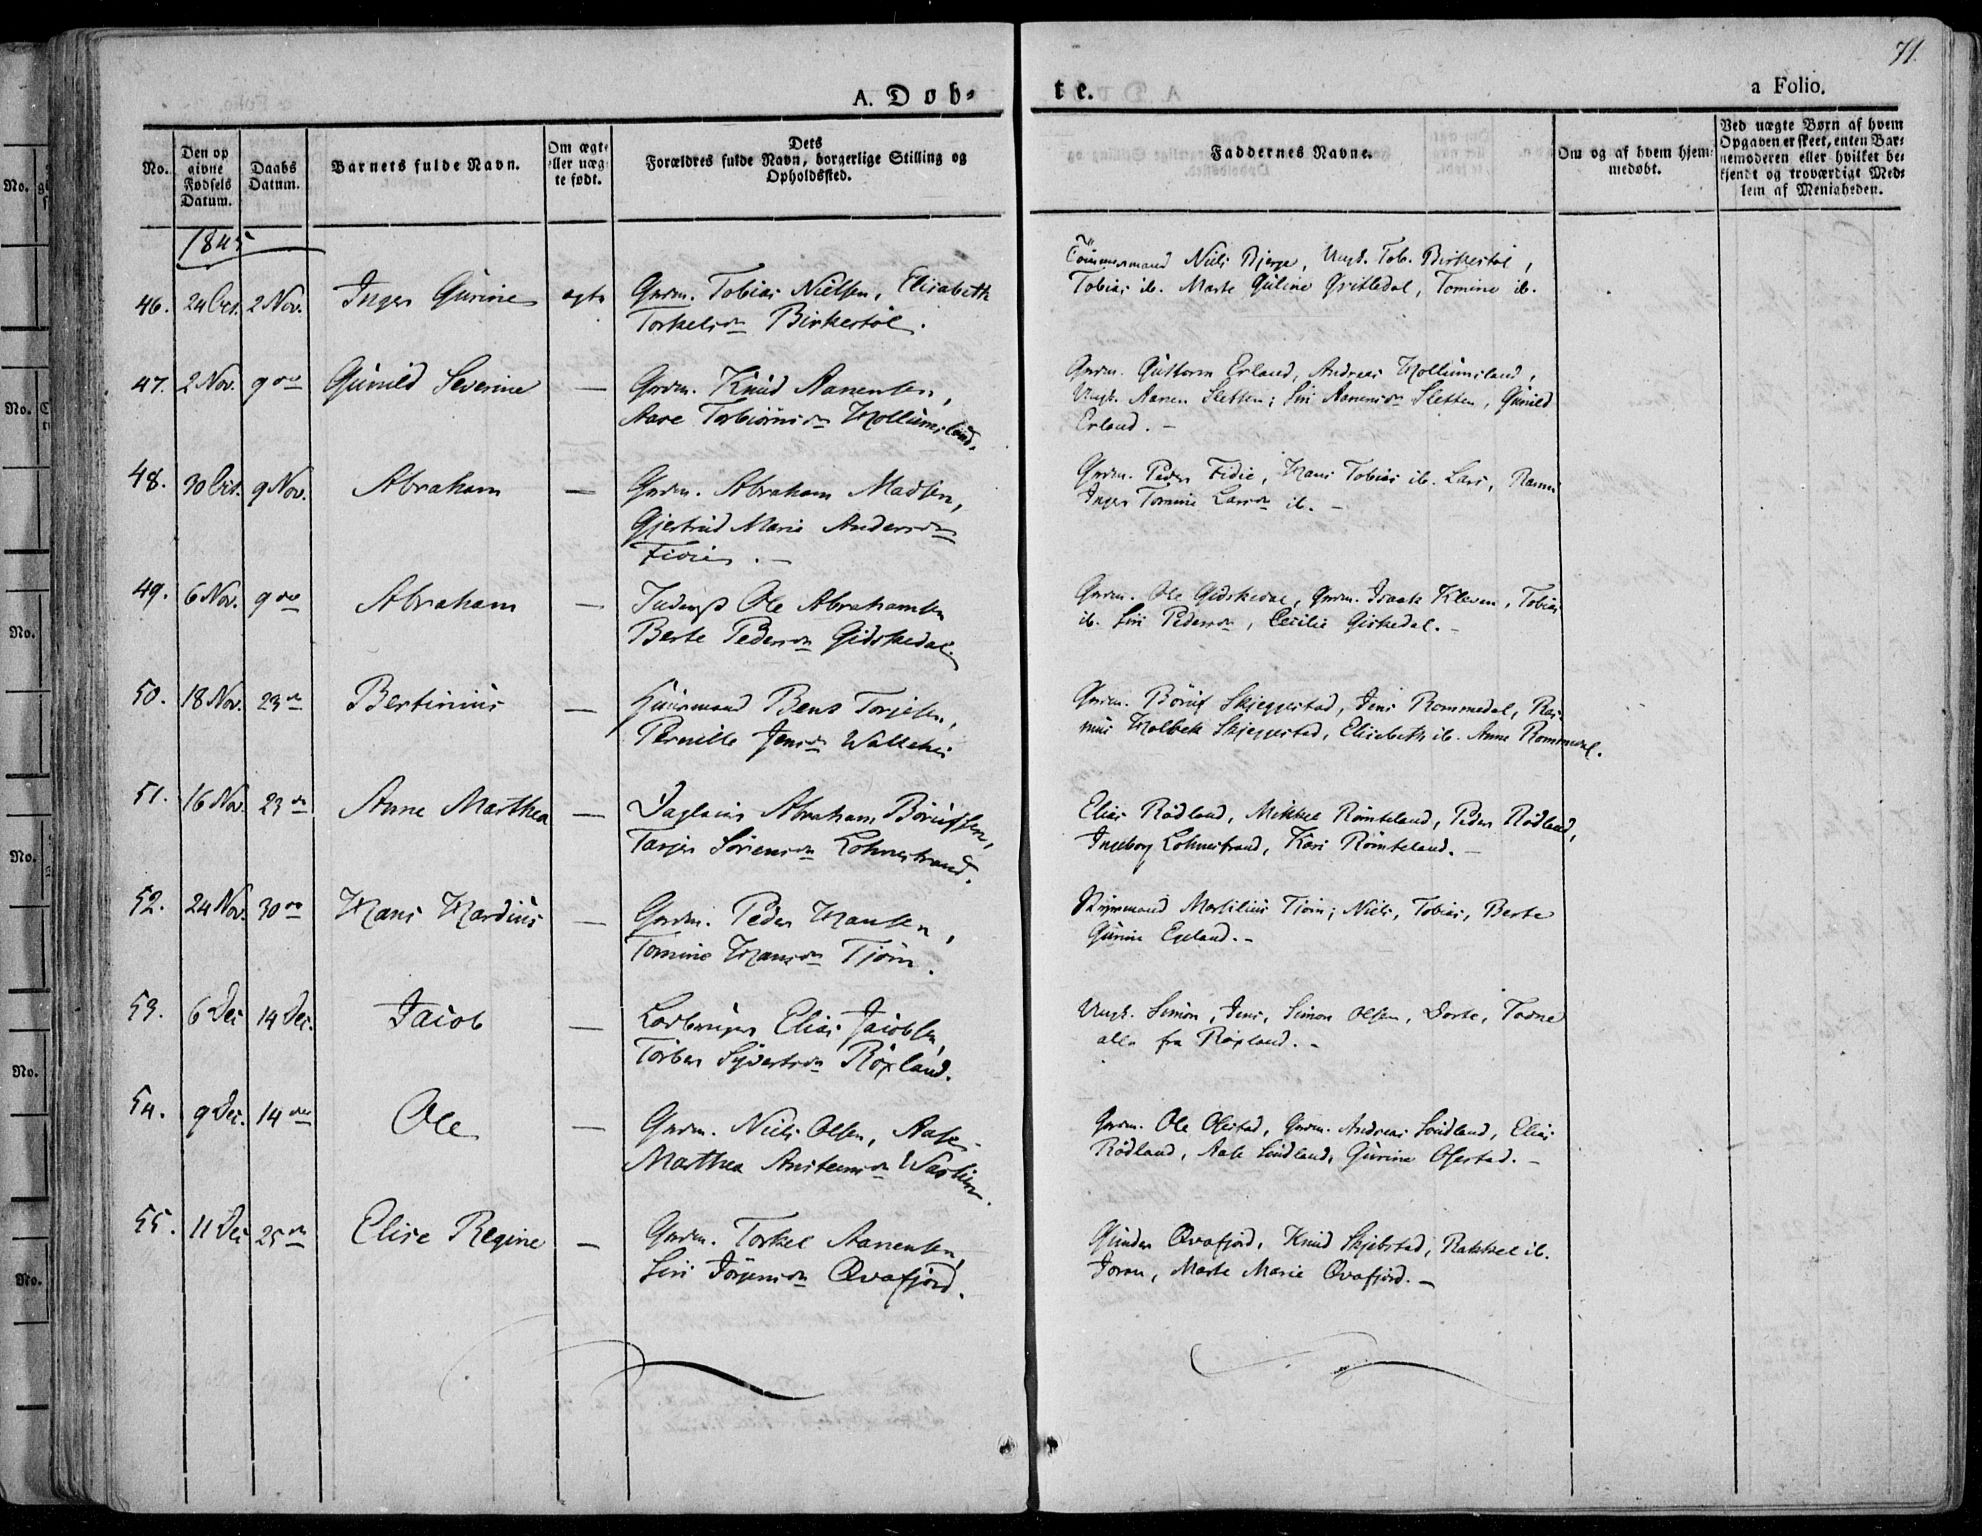 71.
A. Døb-
te.
a Folio.
No.
Den op
givne
Fødsels
Datum.
Daabs
Datum.
Barnets fulde Navn.
Om ægte
eller uæg-
te født.
Dets
Forældres fulde Navn, borgerlige Stilling og
Opholdssted.
Faddernes Navne.
Om og af hvem hjem-
medøbt.
Ved uægte Børn af hvem
Opgaven er skeet, enten Bar-
nemoderen eller hvilket be-
kjendt og troværdigt Med-
lem af Menigheden.
1845
46. 24 Oct. 2 Nov. Inger Gurine ægte Grdm. Tobias Nielsen, Elisabeth
Torkelsdr Birkestøl.
Tømmermand Niels Bjerge, Ungk. Tob. Birkestøl,
Tobias ib. Marte Guline Tomine ib.
47. 2 Nov. 9 do Gunild Severine — Grdm. Knud Aanensen,
Aase Torbiørnsdr Hollumsland.
Grdm. Guttorm Erland, Andreas Hollumsland,
Ungk. Aanen Sletten; Siri Aanensdr Sletten, Gunild
Erland. —
48. 30 Oct. 9 Nov. Abraham — Grdm. Abraham Madsen,
Gjertrud Marie Andersdr
Fidie. —
Grdm. Peder Fidie, Hans Tobias ib. Lars,
Inger Tomine Larsdr ib. —
49. 6 Nov. 9 do Abraham — Inderst Ole Abrahamsen
Berte Pedersdr Gidskedal.
Grdm. Ole Gidskedal, Grdm. Isaak Kleven, Tobias
ib. Siri Pedersdr, Cecilie Giskedal. —
50. 18 Nov. 23 do Bertinius — Huusmand Bent Torjesen,
Pernille Jensdr
Grdm. Børuf Skjeggestad, Jens Rommedal, Ras-
mus Holbek Skjeggestad, Elisabeth ib. Anne Rommedal.
51. 16 Nov. 23 do Anne Marthea — Abraham Børufsen,
Tarjer Sörensdr Lohnestrand.
Elias Rødland, Mikkel Römteland, Peder Rødland,
Ingeborg Lohnestrand, Kari Römteland. —
52. 24 Nov. 30 do Hans Mardius — Grdm. Peder Hansen,
Tomine Hansdr Tjöm.
Martilius Tjöm; Niels, Tobias, Berte
Gurine Egeland. —
53. 6 Dec 14 Dec. Jacob — Elias Jacobsen,
Torbor Syvertsdr Röxland.
Ungk. Simon, Jens, Simon Olsen, Dorte, Tadne
alle fra Röxland. —
54. 9 Dec. 14 do Ole — Grdm. Niels Olsen, Aase
Marthea Anstensdr
Grdm. Ole Ofestad, Grdm. Andreas Sundland, Elias
Rødland, Aase Sundland, Gurine Ofestad. —
55. 11 Dec 25 do Elise Regine — Grdm. Torkel Aanensen,
Siri Jörgensdr Qvafjord.
Gunder Qvafjord, Knud Skjebstad, Rakkel ib.
Joran, Marte Marie Qvafjord. —